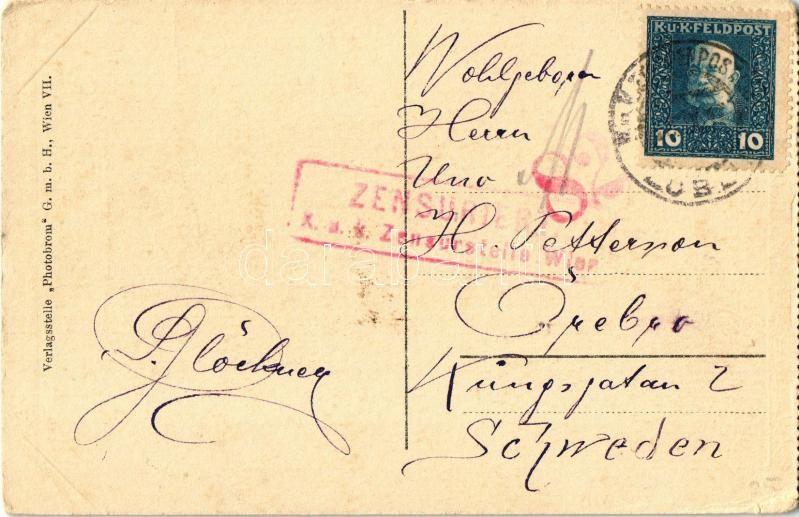 Verlagsstelle „Photobrom“ G. m. b. H., Wien VII.
K.u.K. FELDPOST
10 10
LUBL
ZENSURIERT
K. u. k. Zensurstelle Wien
Wohlgeboren
Herrn
Uno
H. Petterson
Örebro
Kungsgatan 2
Schweden
Glöckner
darabanth